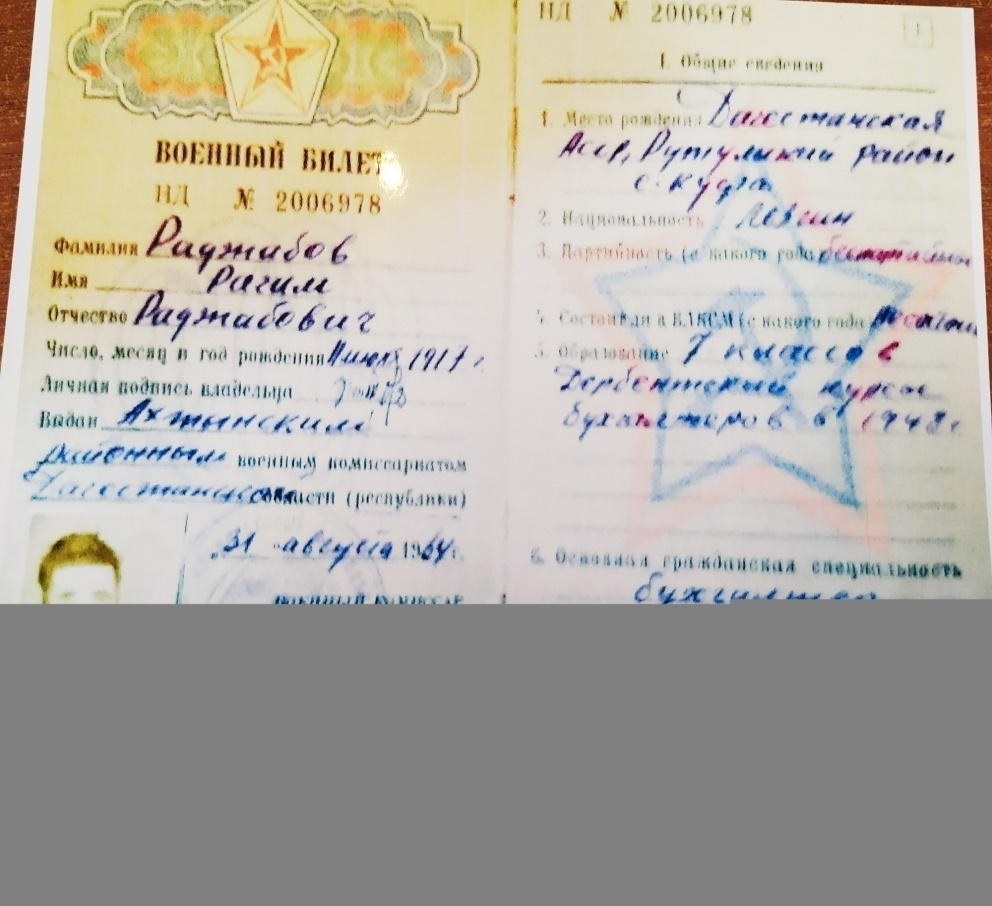 ВОЕННЫЙ БИЛЕТ
НД № 2006978
Фамилия Раджабов
Имя Рагим
Отчество Раджабович
Число, месяц и год рождения 1917 г.
Личная подпись владельца
Выдан Ахтынским
районным военным комиссариатом
Дагестанской области (республики)
"31" августа 1964 г.
ВОЕННЫЙ КОМИССАР
НД № 2006978
1
I. Общие сведения
1. Место рождения Дагестанская
Асср, Рутульский район
с. Куфа
2. Национальность Лезгин
3. Партийность (с какого года беспартийный
4. Состоял ли в ВЛКСМ (с какого года
5. Образование 7 классов
Дербентский курсы
бухгалтеров в 1948 г.
6. Основная гражданская специальность
бухгалтер